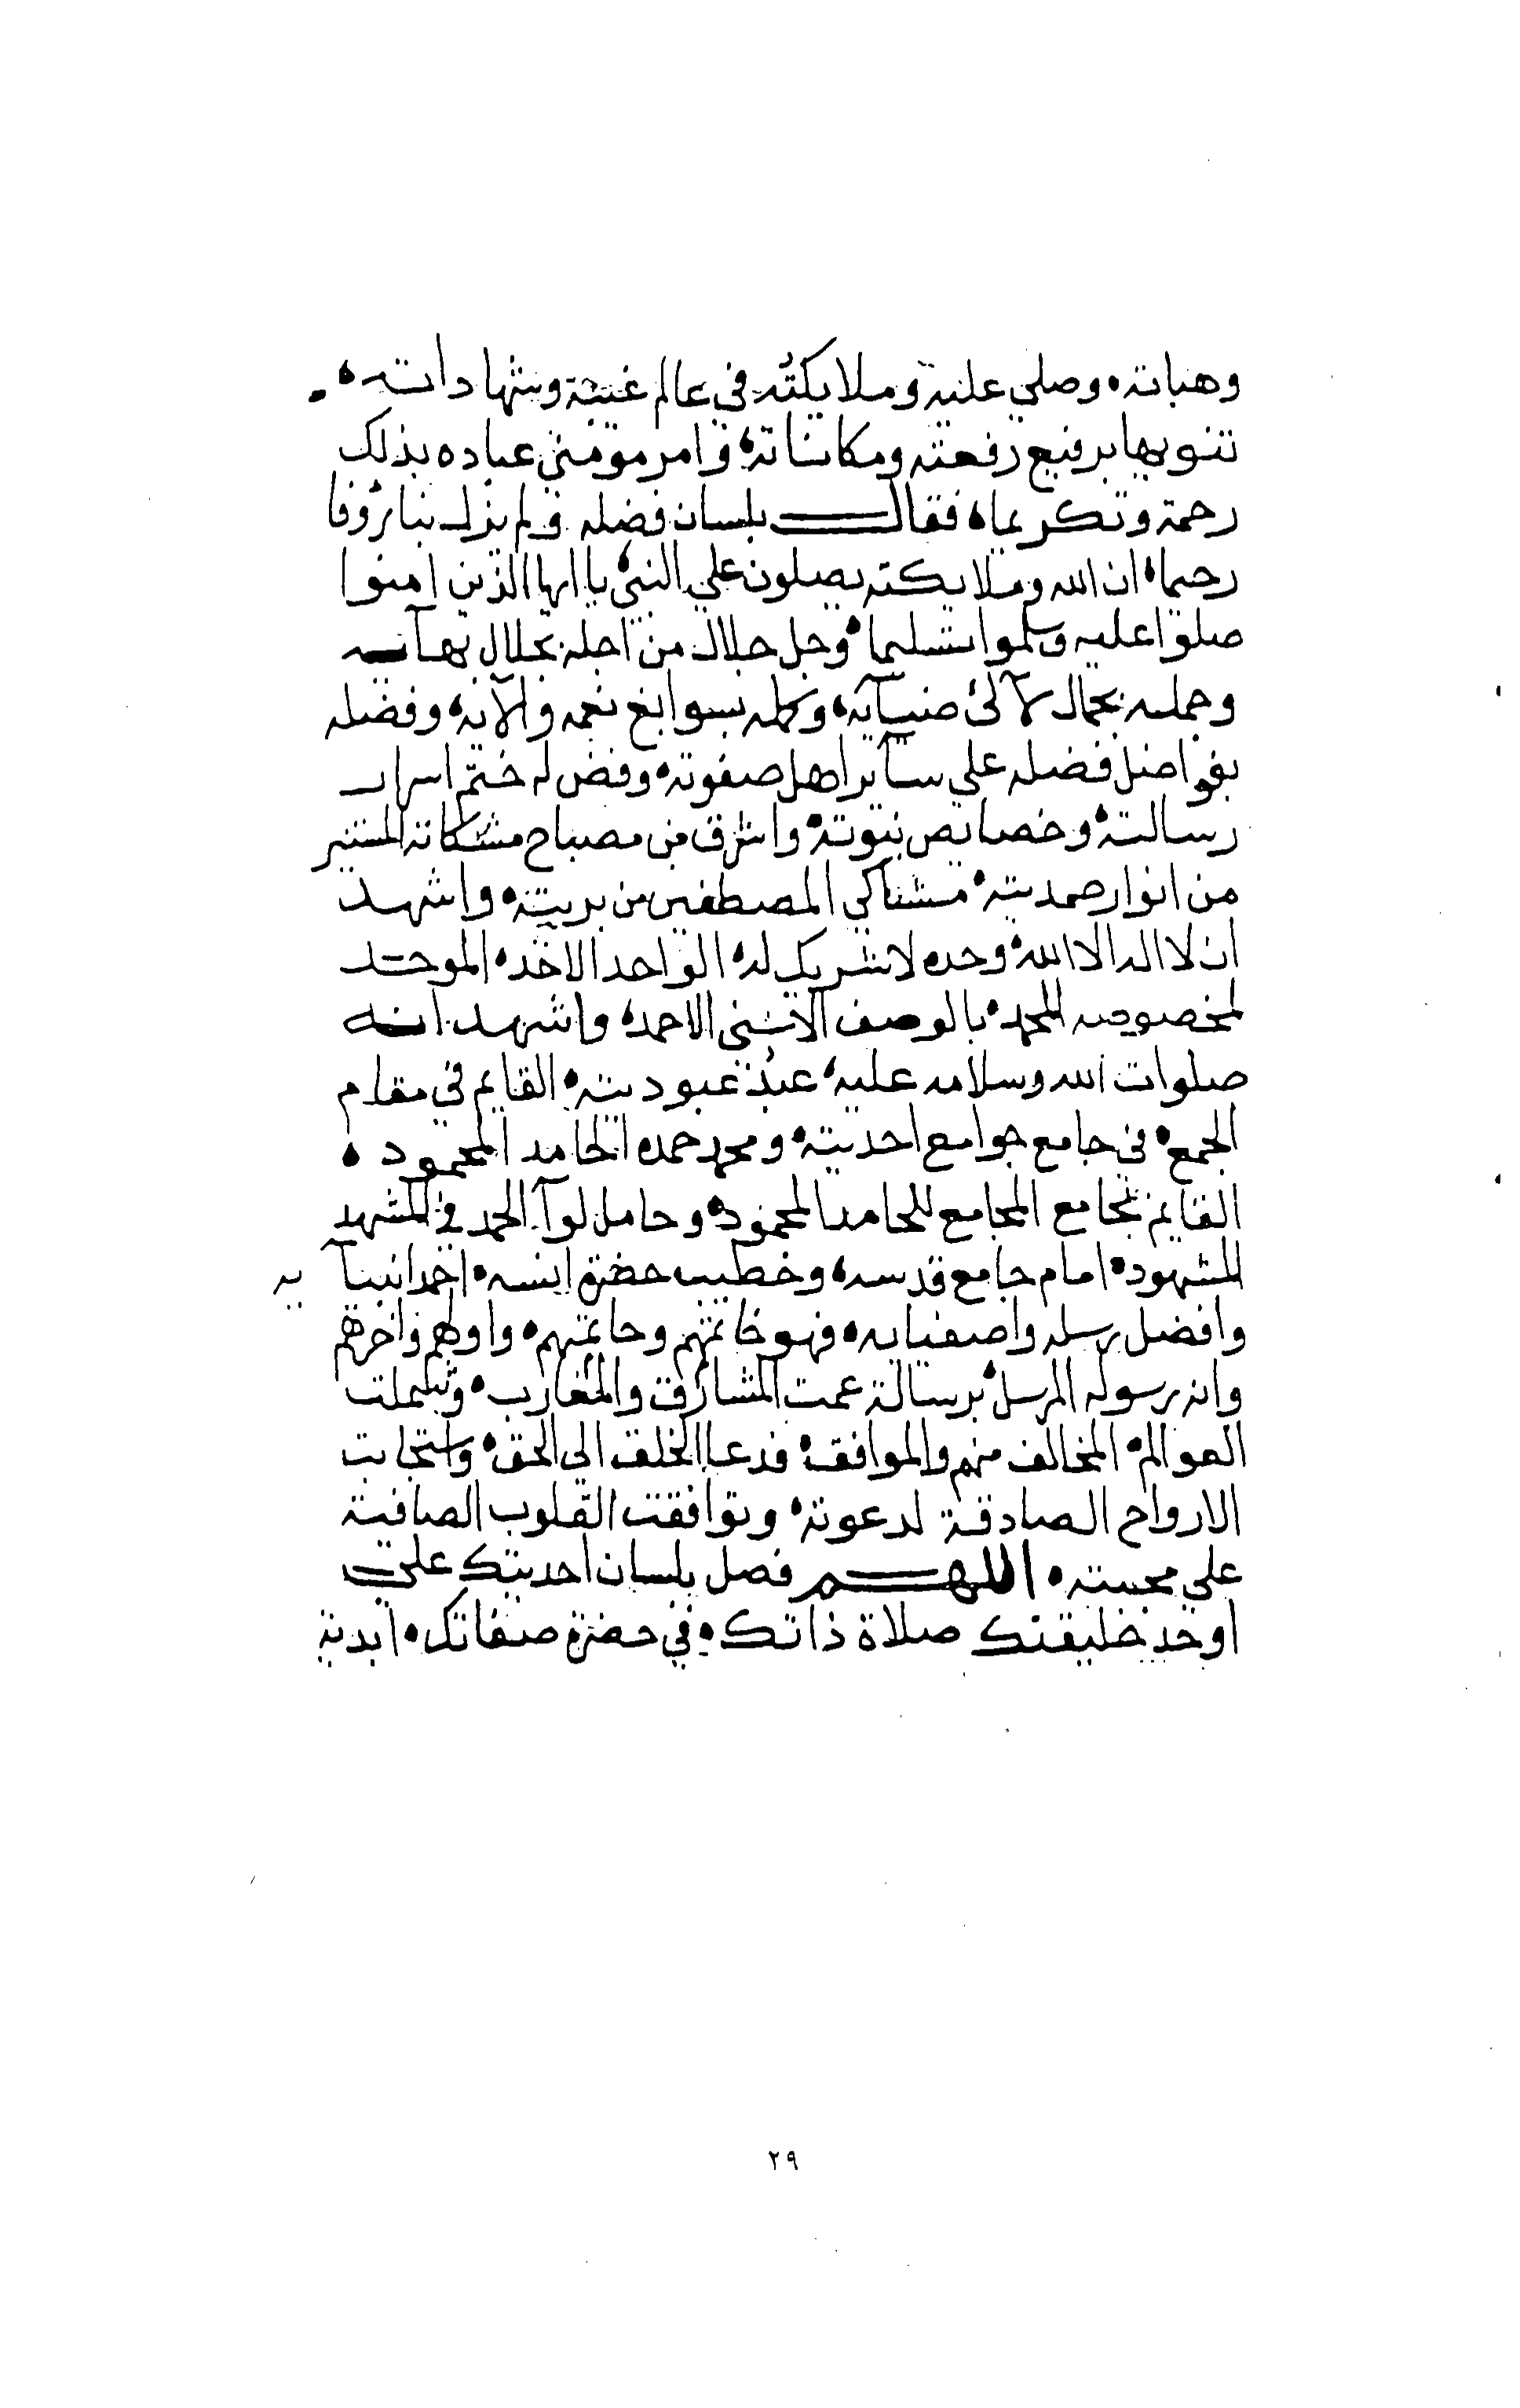 وهباته وصلي عليه وملايكته في عالم غيبة وشهاداته
تنويها برفيع رفعته ومكاناته وامر مومني عباده بذلك
رحمة وتكريما فقال بلسان فضله ولم يزل بنا رؤفا
رحيما ان الله وملايكته يصلون علي النبي يا ايها الذين امنوا
صلوا عليه وسلموا تسليما وجل جلال من اجله بجلال بهآئه
وجمله بجمال لآلئ ضيآيه وكمله بسوابغ نعمه والآيه وفضله
بفواضل فضله علي سآير اهل صفوته وفض له ختم اسرار
رسالته وخصايص نبوته واشرق من مصباح مشكاته المستنير
من انوار صمديته مشاكي المصطفين من بريته واشهد
ان لا اله الا الله وحده لا شريك له الواحد الاحد الموحد
لمخصوصه المحمد بالوصف الاسنى الاحمد واشهد انه
صلوات الله وسلامه عليه عبد عبوديته القايم في مقام
الجمع في جامع جوامع احديته ومحمد حمده الحامد المحمود
القايم بجامع المجامع للحامد المحمود وحامل لوآ الحمد في المشهد
المشهود امام جامع قدسه وخطيب حضرة انسه احمد انبيآيه
وافضل رسله واصفيايه فهو خاتمهم وحاتمهم واولهم واخرهم
وانه رسوله المرسل برسالة عمت المشارق والمغارب وشملت
العوالم المخالف منهم والموافق فدعا الخلق الي الحق واستجابت
الارواح الصادقة لدعوته وتوافقت القلوب الصافية
علي محبته اللهم فصل بلسان احديتك علي
اوحد خليقتك صلاة ذاتك في حضرة صفاتك ابدية
٢٩